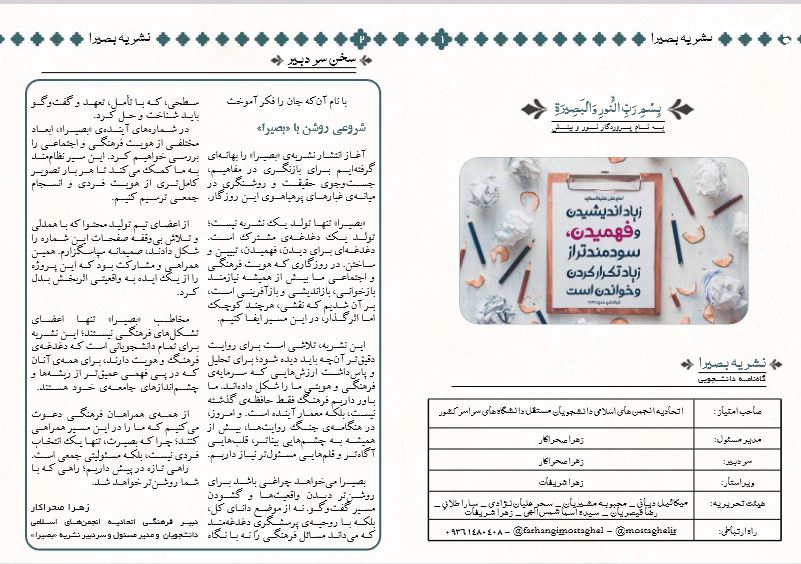 نشریه بصیرا
۱
بِسْمِ رَبِّ النُّورِ وَالْبَصِيرَةِ
به نام پروردگار نور و بینش
امام علی علیه‌السلام
زیاد اندیشیدن
و فهمیدن،
سودمندتر از
زیاد تکرار کردن
و خواندن است
نشریه بصیرا
گاهنامه دانشجویی
صاحب امتیاز: اتحادیه انجمن های اسلامی دانشجویان مستقل دانشگاه های سراسر کشور
مدیر مسئول: زهرا صحراکار
سر دبیر: زهرا صحراکار
ویراستار: زهرا شریفات
هیئت تحریریه: میکائیل دیانی _ محبوبه مشیریان _ سحر علیان نژادی _ سارا طلایی _
رضا قیصریان _ سیده اسما شمس الهی _ زهرا شریفات
راه ارتباطی: ۰۹۳۶۱۴۸۰۴۰۸ - @farhangimostaghel - @mostaghelir
نشریه بصیرا
۲
سخن سر دبیر
با نام آن‌که جان را فکر آموخت
شروعی روشن با «بصیرا»
آغاز انتشار نشریه‌ی «بصیرا» را بهانه‌ای
گرفته‌ایم برای بازنگری در مفاهیم،
جست‌وجوی حقیقت و روشنگری در
میانه‌ی غبارهای پرهیاهوی این روزگار.
«بصیرا» تنها تولد یک نشریه نیست؛
تولد یک دغدغه‌ی مشترک است.
دغدغه‌ای برای دیدن، فهمیدن، تبیین و
ساختن. در روزگاری که هویت فرهنگی
و اجتماعی ما بیش از همیشه نیازمند
بازخوانی، بازاندیشی و بازآفرینی است،
بر آن شدیم که نقشی، هرچند کوچک
اما اثرگذار، در این مسیر ایفا کنیم.
این نشریه، تلاشی است برای روایت
دقیق‌تر آن‌چه باید دیده شود؛ برای تحلیل
و پاس‌داشت ارزش‌هایی که سرمایه‌ی
فرهنگی و هویتی ما را شکل داده‌اند. ما
باور داریم فرهنگ فقط حافظه‌ی گذشته
نیست، بلکه معمار آینده است. و امروز،
در هنگامه‌ی جنگ روایت‌ها، بیش از
همیشه به چشم‌هایی بیناتر، قلب‌هایی
آگاه‌تر و قلم‌هایی مسئول‌تر نیاز داریم.
بصیرا می‌خواهد چراغی باشد برای
روشن‌تر دیدن واقعیت‌ها و گشودن
مسیر گفت‌وگو. نه از موضع دانای کل،
بلکه با روحیه‌ی پرسشگری دغدغه‌مند
که می‌داند مسائل فرهنگی را نه با نگاه
سطحی، که با تأمل، تعهد و گفت‌وگو
باید شناخت و حل کرد.
در شماره‌های آینده‌ی «بصیرا»، ابعاد
مختلفی از هویت فرهنگی و اجتماعی را
بررسی خواهیم کرد. این سیر نظام‌مند
به ما کمک می‌کند تا هر بار تصویر
کامل‌تری از هویت فردی و انسجام
جمعی ترسیم کنیم.
از اعضای تیم تولید محتوا که با همدلی
و تلاش بی‌وقفه صفحات این شماره را
شکل دادند، صمیمانه سپاسگزارم. همین
همراهی و مشارکت بود که این پروژه
را از یک ایده به واقعیتی اثربخش بدل
کرد.
مخاطب «بصیرا» تنها اعضای
تشکل‌های فرهنگی نیستند؛ این نشریه
برای تمام دانشجویانی است که دغدغه‌ی
فرهنگ و هویت دارند، برای همه‌ی آنان
که در پی فهمی عمیق‌تر از ریشه‌ها و
چشم‌اندازهای جامعه‌ی خود هستند.
از همه‌ی همراهان فرهنگی دعوت
می‌کنیم که ما را در این مسیر همراهی
کنند؛ چرا که بصیرت، تنها یک انتخاب
فردی نیست، بلکه مسئولیتی جمعی است.
راهی تازه در پیش داریم؛ راهی که با
شما روشن‌تر خواهد شد.
زهرا صحراکار
دبیر فرهنگی اتحادیه انجمن‌های اسلامی
دانشجویان و مدیر مسئول و سردبیر نشریه «بصیرا»